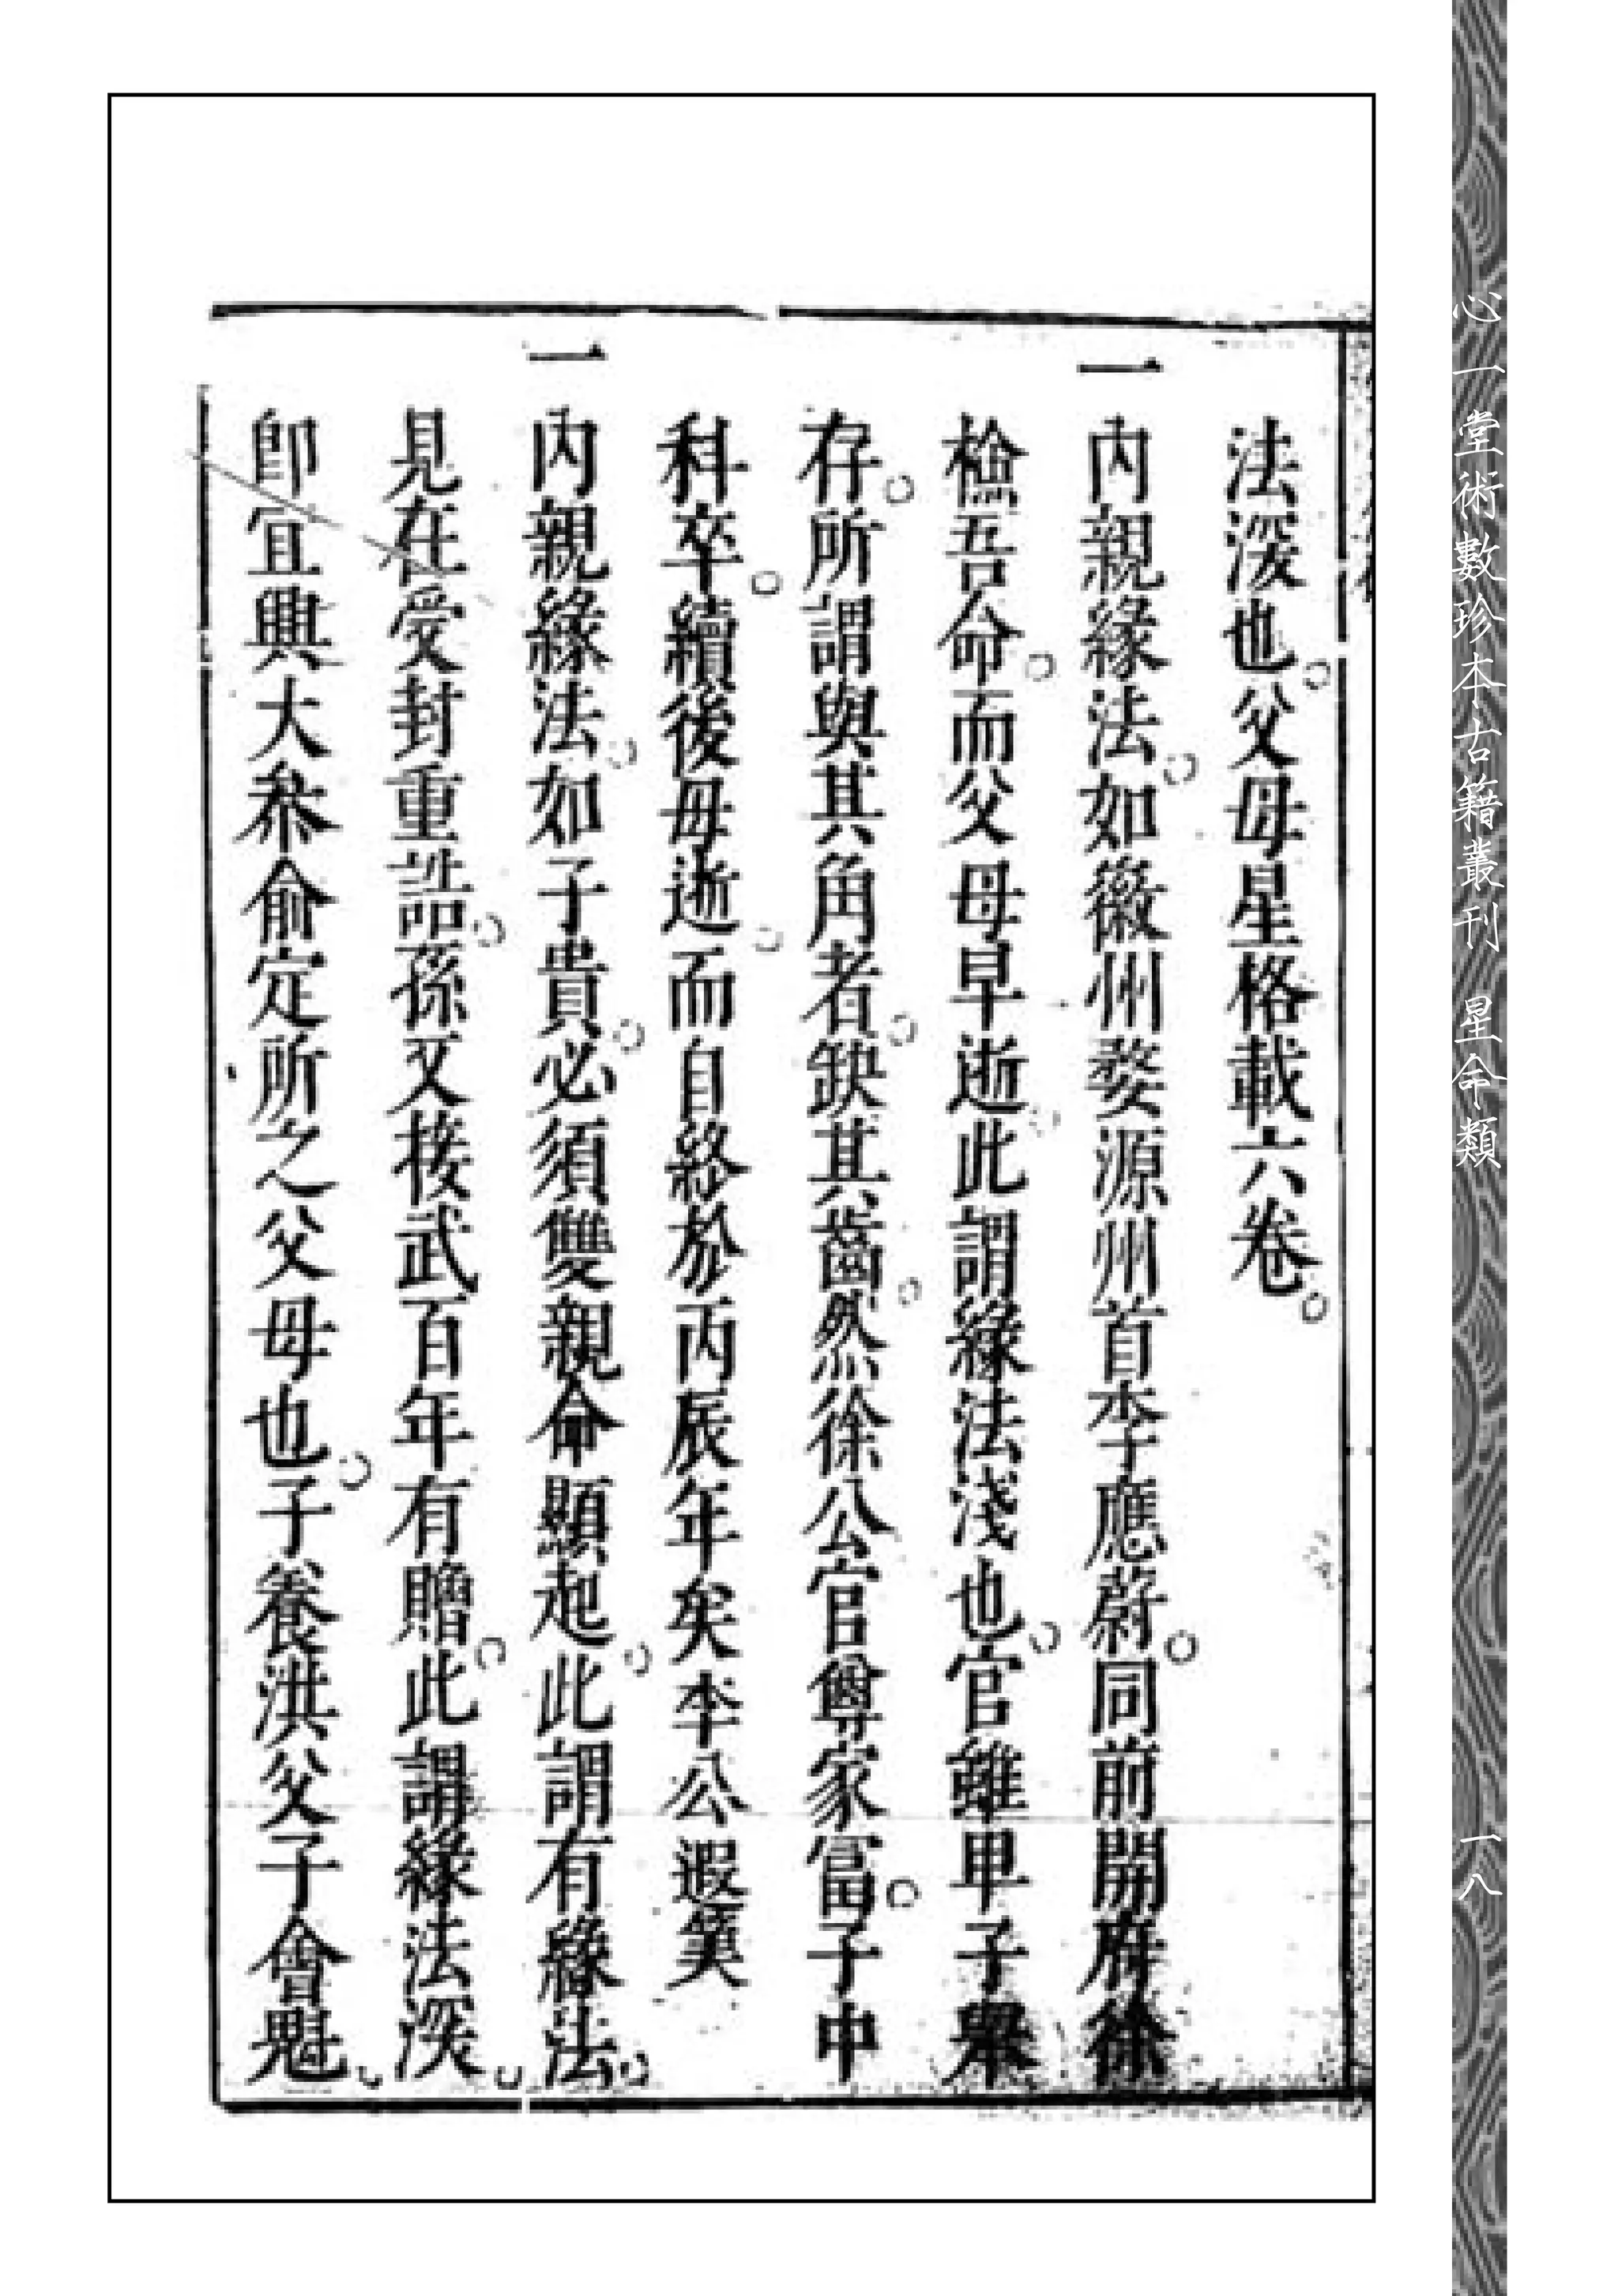 法深也。父母星格載六卷。
一內親緣法。如徽州婺源州首李應蔚。同前開府徐
檢吾命。而父母早逝。此謂緣法淺也。官雖甲子舉
存。所謂與其角者。缺其齒。然徐公官尊家富。子中
科卒。續後母逝。而自終於丙辰年矣李公遐筭
一內親緣法。如子貴。必須雙親命顯起。此謂有緣法。
見在受封重誥。孫又接武百年有贈。此謂緣法深。
卽宜興大叅俞定所之父母也。子養洪父子會魁。
心一堂術數珍本古籍叢刊 星命類
一八